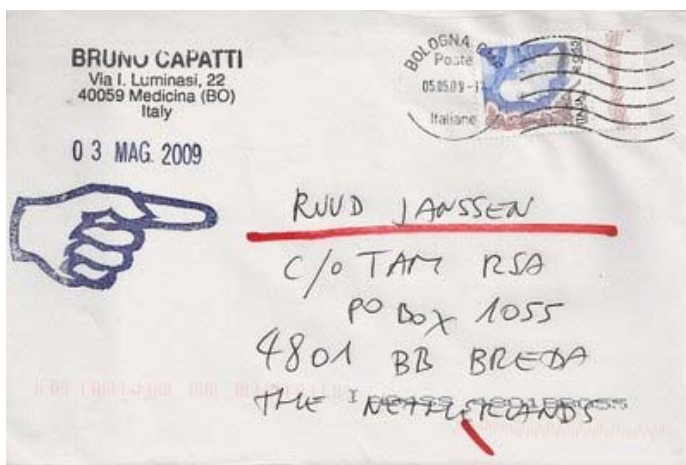 BRUNO CAPATTI
Via I. Luminasi, 22
40059 Medicina (BO)
Italy
0 3 MAG. 2009
BOLOGNA
Poste
05.05.09
Italiane
ITALIA
RUUD JANSSEN
C/O TAM RSA
PO BOX 1055
4801 BB BREDA
THE NETHERLANDS